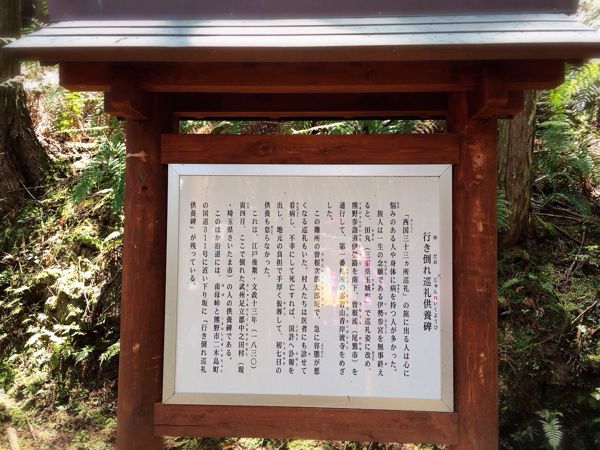 行き倒れ巡礼供養碑
ゆ だお じゅんれいくようひ
「西国三十三カ所巡礼」の旅に出る人は心に
悩みのある人や身体に病を持つ人が多かった。
旅人は一生の念願である伊勢参宮を無事終え
ると、田丸（三重県玉城町）で巡礼姿に改め、
熊野参詣道伊勢路を南下、曽根浦（尾鷲市）を
通行して、第一番札所那智山青岸渡寺をめざ
した。
この難所の曽根次郎太郎坂で、急に容態が悪
くなる巡礼もいた。村人たちは医者にも診せて
看病し、不幸にして死亡すれば、国許へ訃報を
出し、地元の負担で手厚く仮葬して、初七日の
供養も怠らなかった。
これは、江戸後期・文政十三年（一八三〇）
寅四月、ここで倒れた武州足立郡中之田村（現
・埼玉県さいたま市）の人の供養碑である。
このほか沿道には、甫母峠と熊野市二木島町
の国道311号に近い下り坂に「行き倒れ巡礼
供養碑」が残っている。